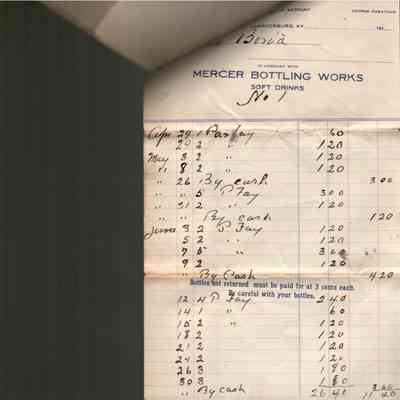 ACCOUNT
GEORGE
HARRODSBURG, KY. 191
Bosia
IN ACCOUNT WITH
MERCER BOTTLING WORKS
SOFT DRINKS
No 1
Apr 29 1 Parfay 60
29 2 " 120
May 3 2 " 120
" 8 2 " 120
" 26 By cash 300
" " 5 P Fay 300
" 31 2 " 120
" " By cash 120
June 3 2 P Fay 120
5 2 " 120
7 5 " 300
9 2 120
" By Cash 420
Bottles not returned must be paid for at 3 cents each.
Be careful with your bottles.
12 4 P Fay 240
14 1 " 60
15 2 " 120
18 2 120
21 2 120
24 2 120
26 3 180
30 3 180 300
" By cash 2640 1140